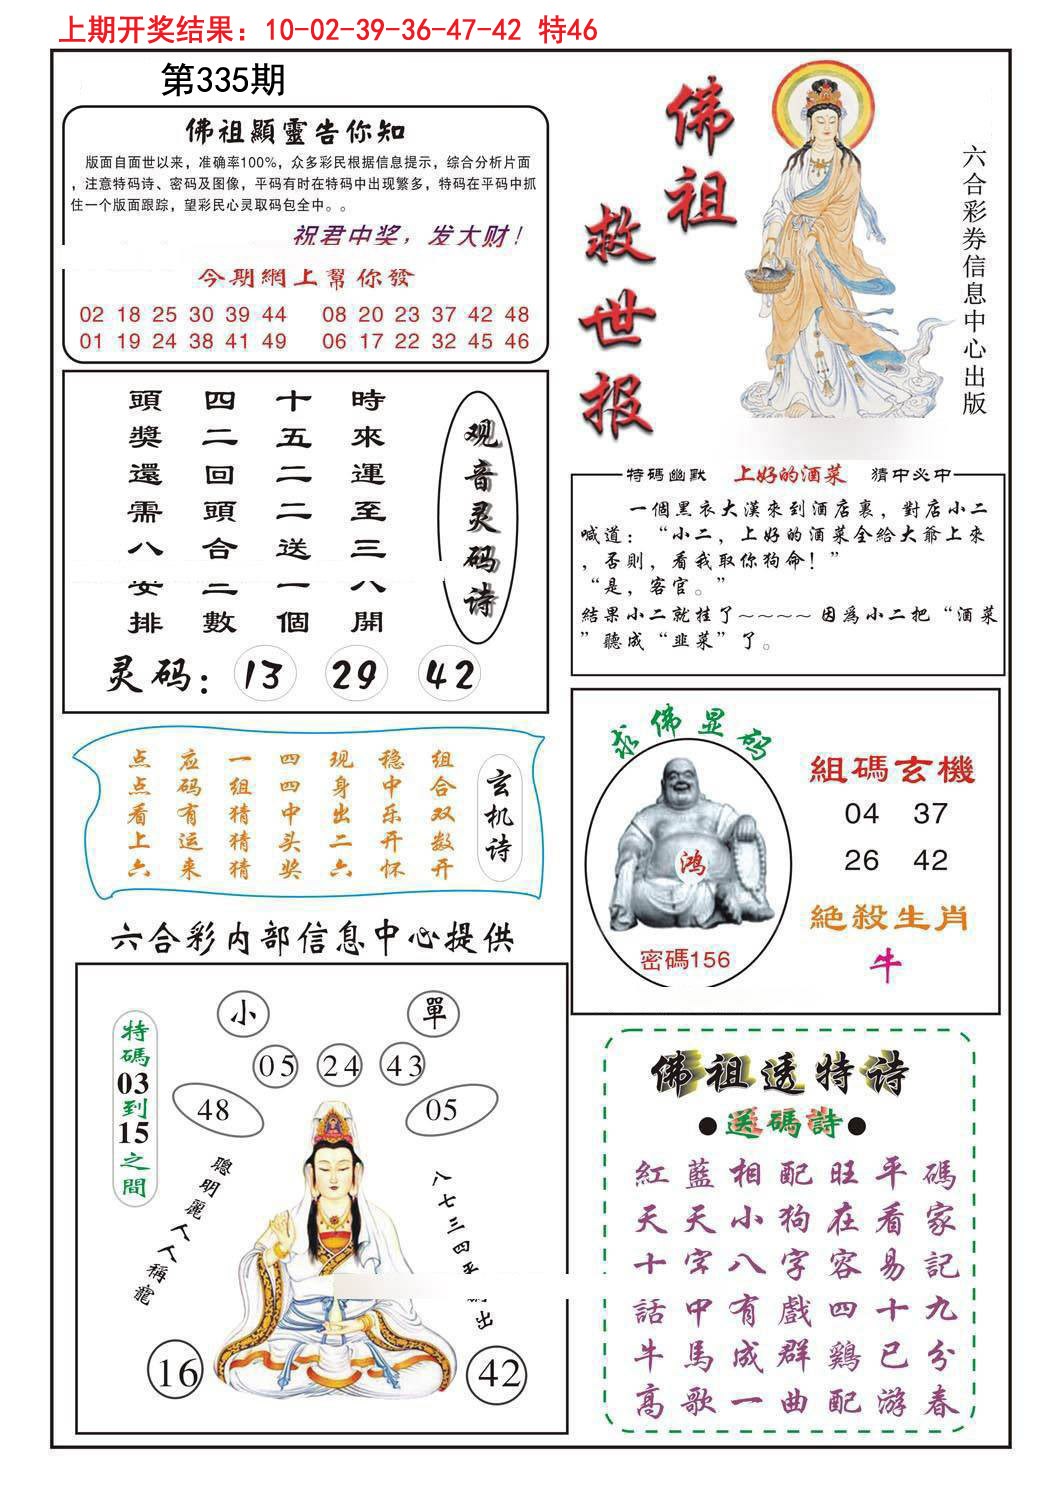 上期开奖结果：10-02-39-36-47-42 特46
第335期
佛祖顯靈告你知
版面自面世以来，准确率100%，众多彩民根据信息提示，综合分析片面
，注意特码诗、密码及图像，平码有时在特码中出现繁多，特码在平码中抓
住一个版面跟踪，望彩民心灵取码包全中。。
祝君中奖，发大财！
今期網上幫你發
02 18 25 30 39 44 08 20 23 37 42 48
01 19 24 38 41 49 06 17 22 32 45 46
佛祖
救世报
六合彩券信息中心出版
觀音灵码诗
時來運至三八開
十五二二送一個
四二回頭合二數
頭獎還需八安排
灵码：13 29 42
特碼幽默 上好的酒菜 猜中必中
一個黑衣大漢來到酒店裏，對店小二
喊道：“小二，上好的酒菜全給大爺上來
，否則，看我取你狗命！”
“是，客官。”
結果小二就挂了~~~~因爲小二把“酒菜
”聽成“韭菜”了。
玄机诗
组合双数开
稳中乐开怀
现身出二六
四四中头奖
一组猜猜猜
应码有运来
点点看上六
求佛显码
鸿
密碼156
組碼玄機
04 37
26 42
絕殺生肖
牛
六合彩内部信息中心提供
小 單
05 24 43
48 05
特碼03到15之間
聰明麗人人稱寵
八七三四
出
16 42
佛祖透特诗
●送碼詩●
紅藍相配旺平碼
天天小狗在看家
十字八字容易記
話中有戲四十九
牛馬成群鷄已分
高歌一曲配游春